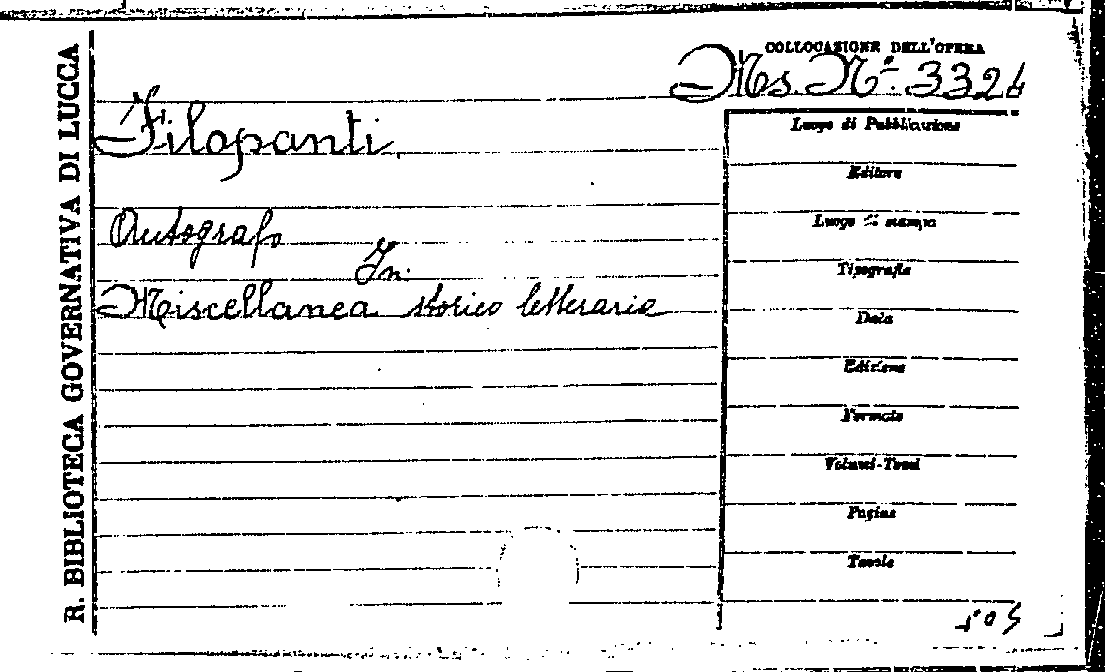 R. BIBLIOTECA GOVERNATIVA DI LUCCA
COLLOCAZIONE DELL'OPERA
Ms. N.° 3324
Filopanti.
Autografo
In:
Miscellanea storico letteraria
Luogo di Pubblicazione
Editore
Luogo di stampa
Tipografia
Data
Edizione
Formato
Volumi-Tomi
Pagine
Tavole